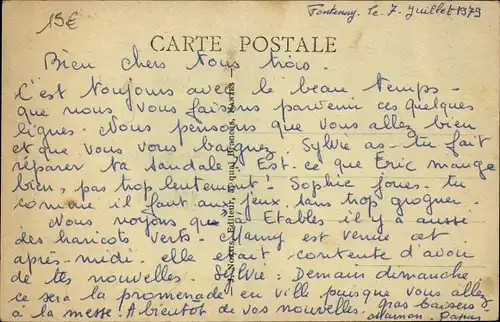 15€
Fontenay, le 7 Juillet 1979
CARTE POSTALE
Bien chers tous trois.
C'est toujours avec le beau temps
que nous vous faisons parvenir ces quelques
lignes. Nous pensons que vous allez bien
et que vous vous baignez. Sylvie as-tu fait
réparer ta sandale. Est-ce que Eric mange
bien, pas trop lentement! Sophie joues-tu
comme il faut aux jeux sans trop grogner.
Nous voyons que Etables il y a aussi
des haricots verts. Mamy est venue cet
après-midi. elle était contente d'avoir
de tes nouvelles. Sylvie: Demain dimanche
ce sera la promenade en ville puisque vous allez
à la messe. A bientôt de vos nouvelles. gros baisers
maman. Papa.
Editeur, NANTES